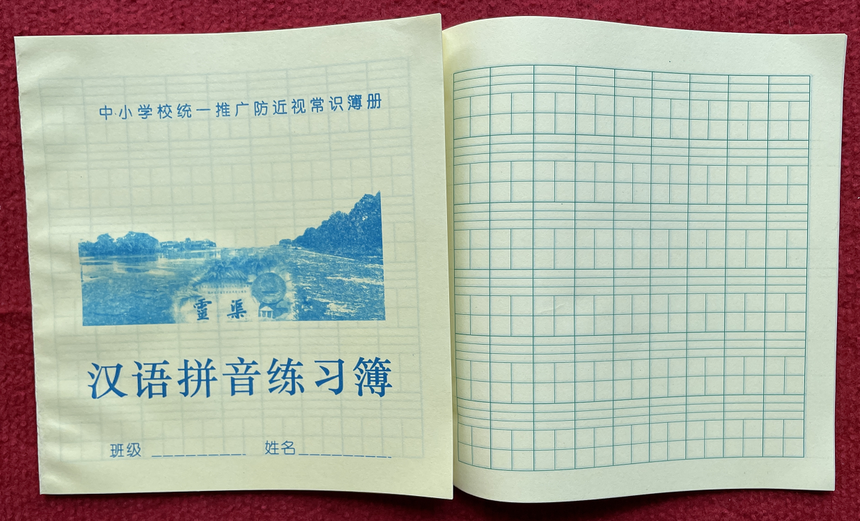 中小学校统一推广防近视常识簿册
靈渠
汉语拼音练习簿
班级 姓名